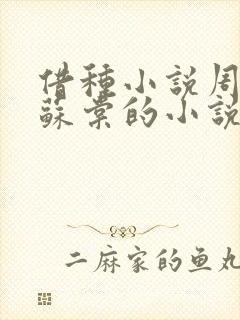 借种小説周
蘇棠的小説
二麻家的鱼丸